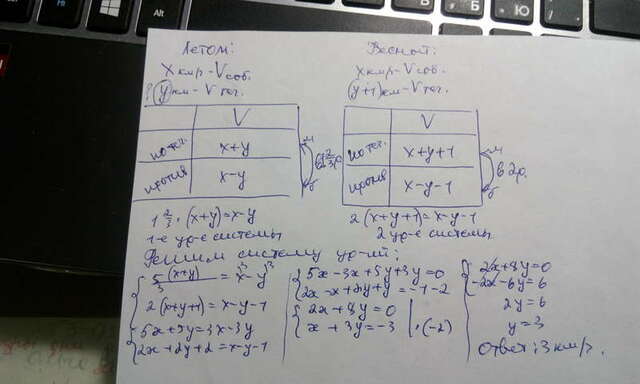 Летом:
x км/ч - V соб.
? y км - V теч.
V
по теч. x+y
против x-y
1 2/3 · (x+y)=x-y
1-е ур-е системы
Весной:
x км/ч - V соб.
(y+1) км - V теч.
V
по теч. x+y+1
против x-y-1
м
б
в 2 р.
2(x+y+1)=x-y-1
2 ур-е системы
Решим систему ур-ий:
5(x+y)/3 = x - y
2(x+y+1)=x-y-1
5x+5y=3x-3y
2x+2y+2=x-y-1
5x-3x+5y+3y=0
2x-x+2y+y=-1-2
2x+8y=0
x+3y=-3 | ·(-2)
2x+8y=0
-2x-6y=6
2y=6
y=3
Ответ: 3 км/ч.